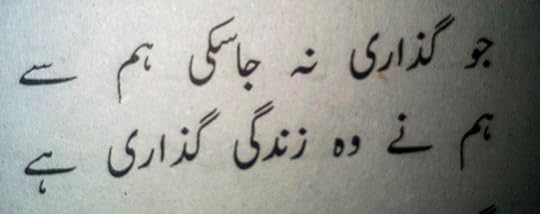 جو گذاری نہ جاسکی ہم سے
ہم نے وہ زندگی گذاری ہے